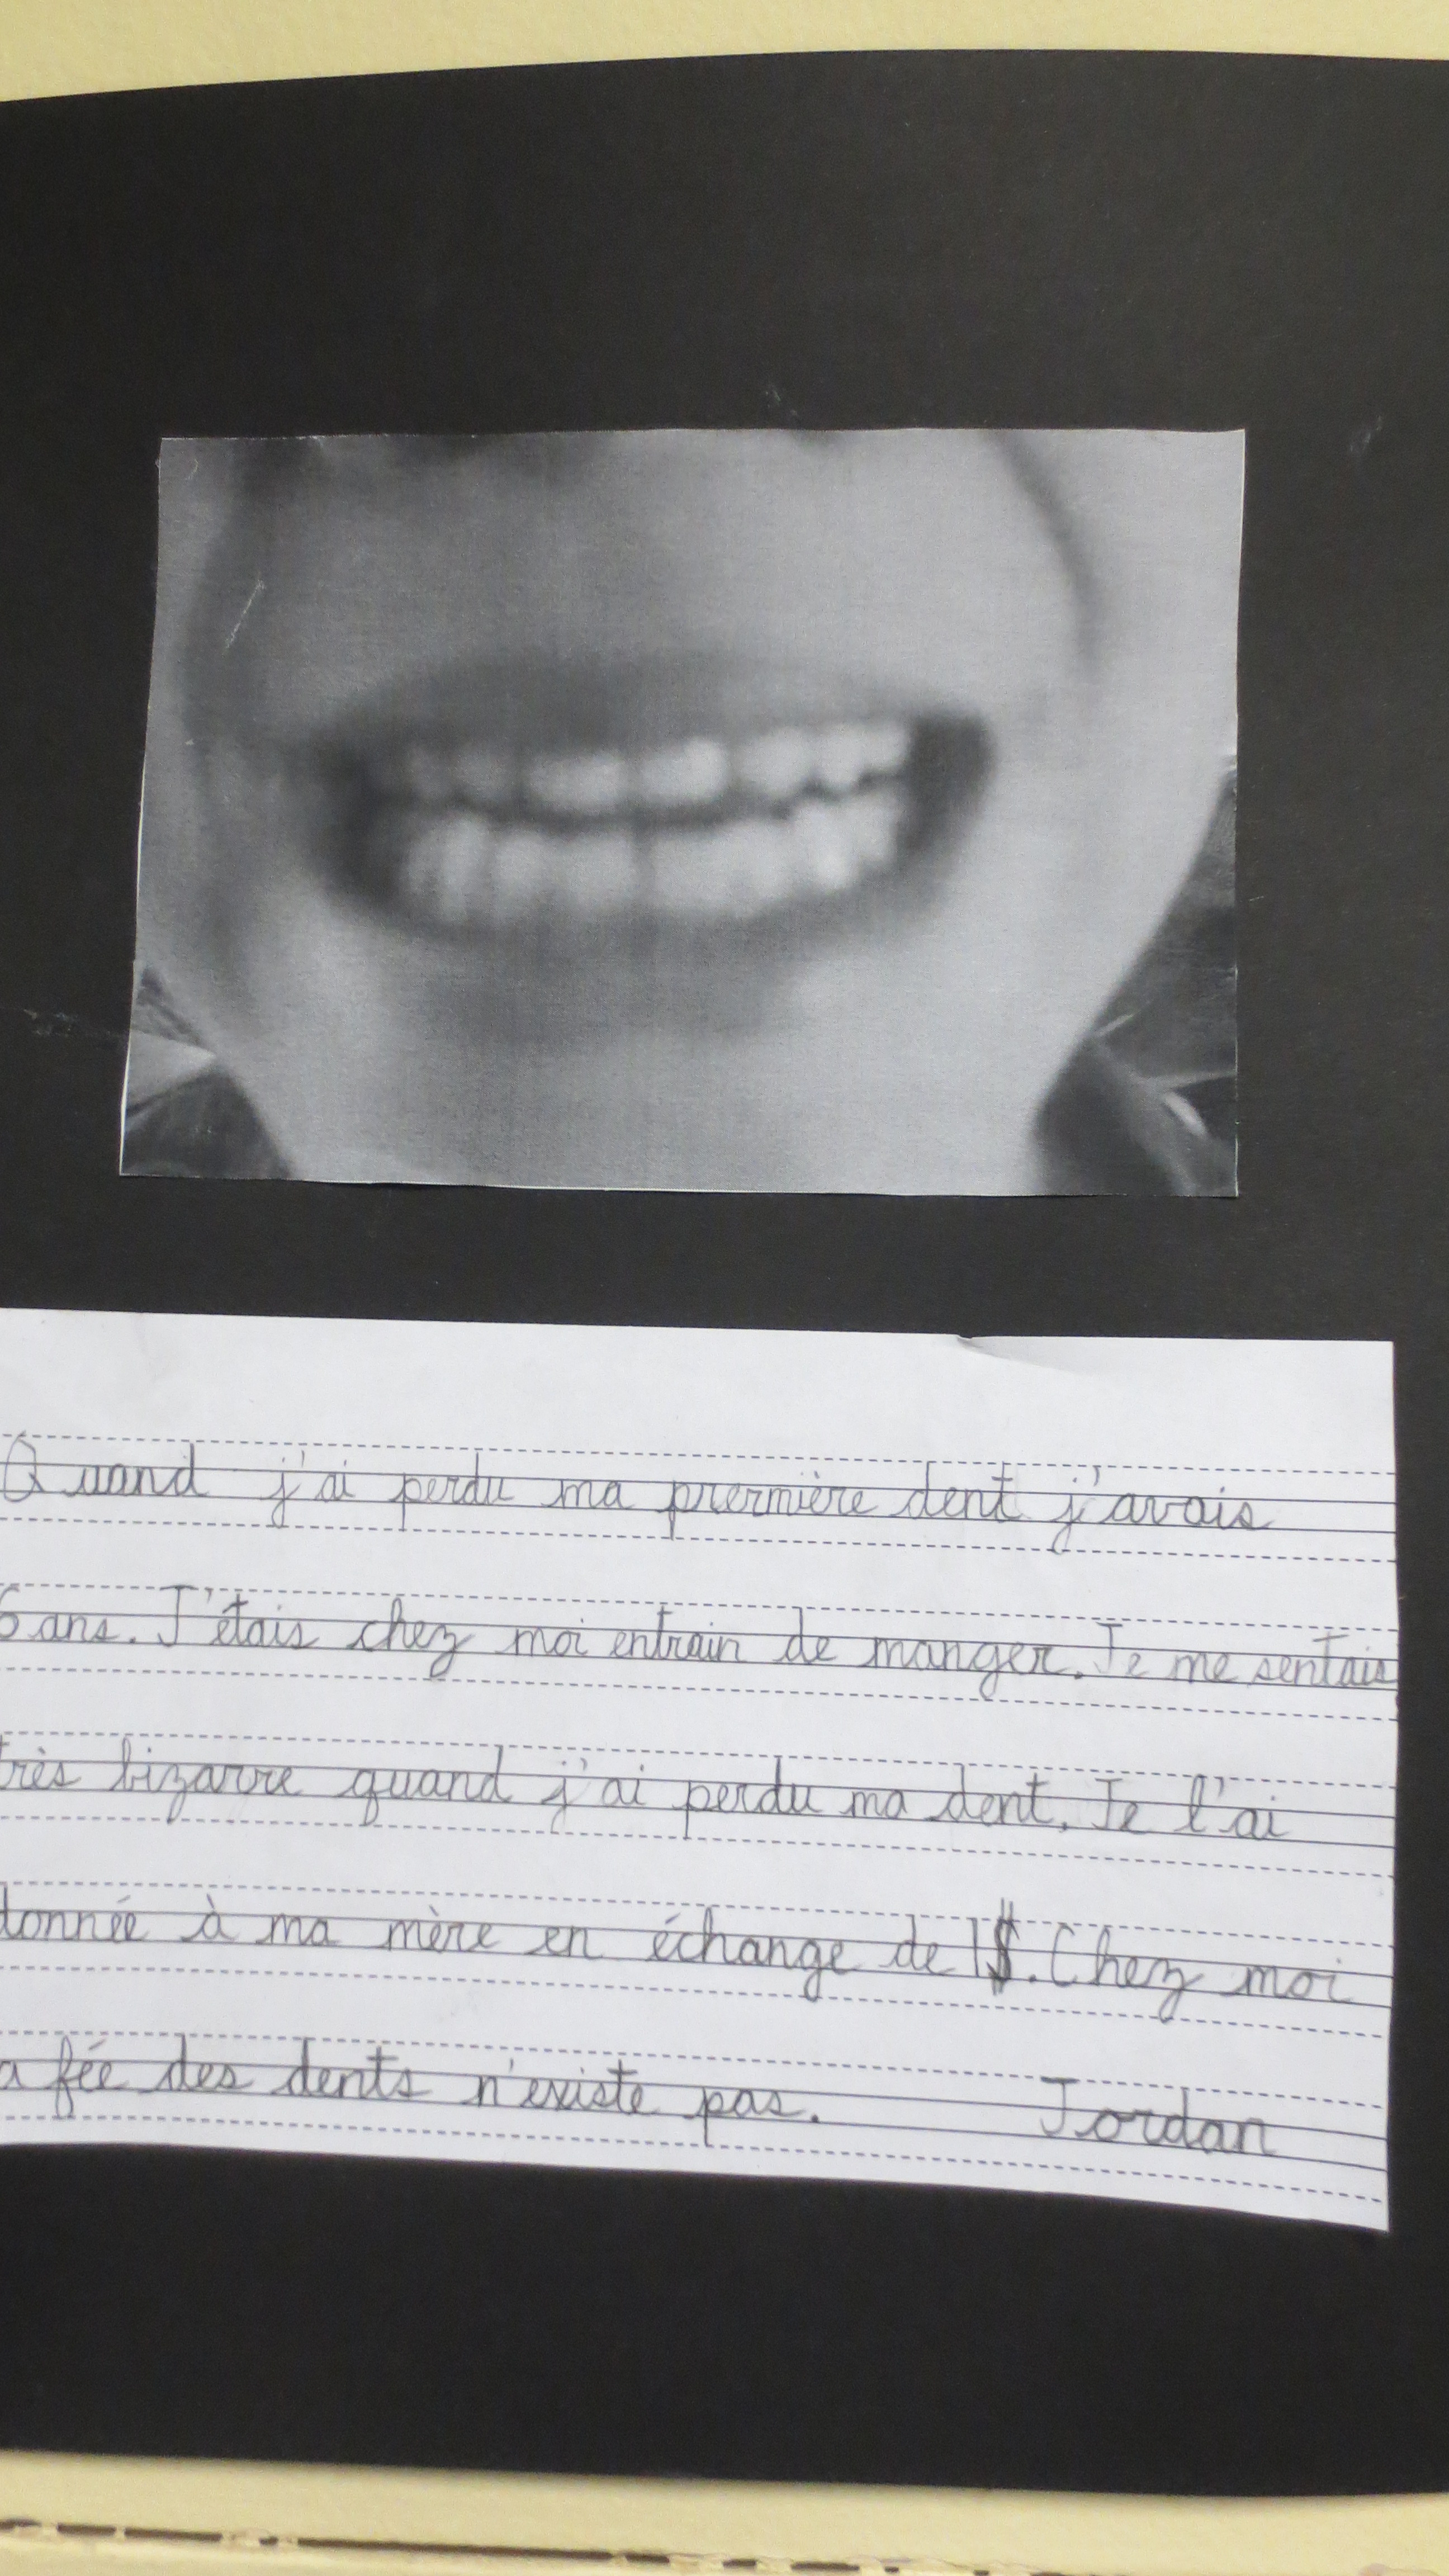 Quand j'ai perdu ma prermière dent j'avais
6 ans. J'étais chez moi entrain de manger. Je me sentais
très bizarre quand j'ai perdu ma dent. Je l'ai
donnée à ma mère en échange de 1$. Chez moi
a fée des dents n'existe pas. Jordan